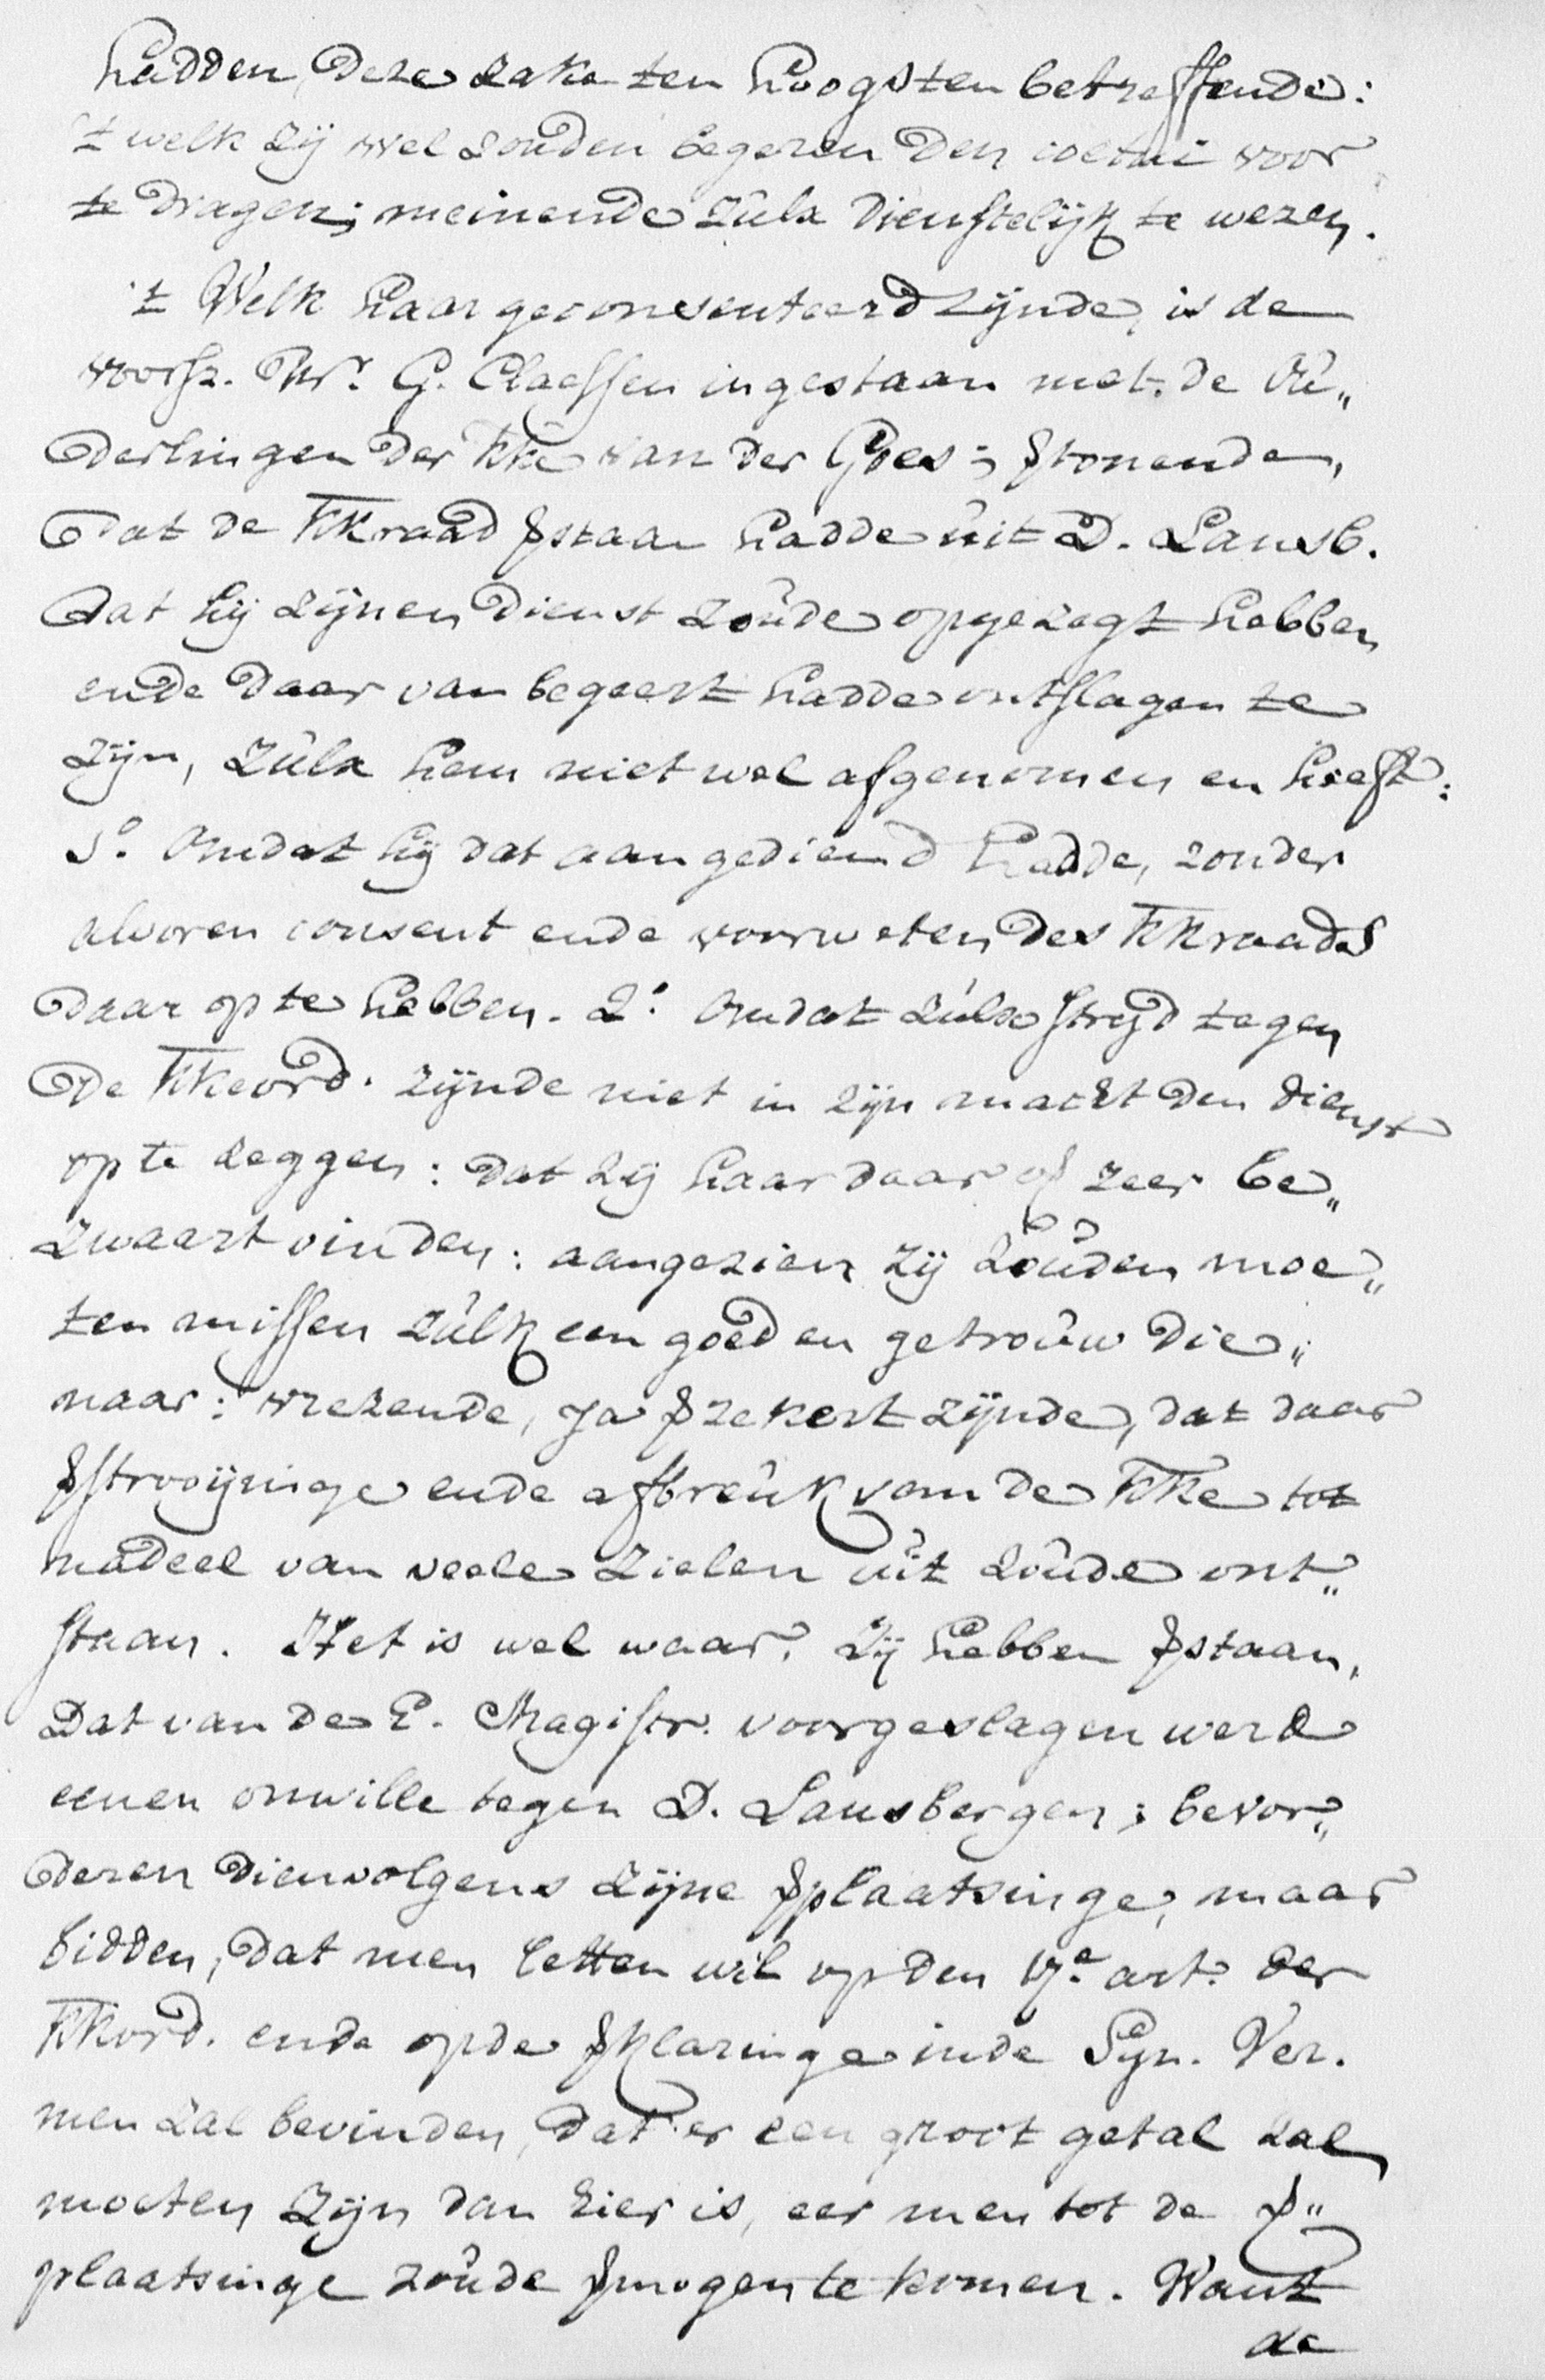 hadden, deze zake ten hoogsten betreffende:
't welk zij wel zouden begeren den coetui voor
te dragen; meinende zulx dienstelijk te wezen.
't Welk haar geconsenteerd zijnde, is de
voorsz. Mr. G. Claessen ingestaan met de Ou„
derlingen der KKe van der Goes; ꝟtonende,
dat de KKraad ꝟstaan hadde uit D. Lansb.
dat hij zijnen dienst zoude opgezegt hebben
ende daar van begeert hadde ontslagen te
zijn, zulx hem niet wel afgenomen en heeft:
1o. Omdat hij dat aangediend hadde, zonder
alvoren consent ende voorweten des KKraads
daar op te hebben. 2o. Omdat zulx strijd tegen
de KKeord. zijnde niet in zijn macht den dienst
op te zeggen: dat zij haar daar of zeer be„
zwaart vinden: aangezien zij zouden moe„
ten missen zulk een goed en getrouw die„
naar: vrezende, ja ꝟzekert zijnde, dat daar
ꝟstrooijinge ende afbreuk van de KKe tot
nadeel van veele zielen uit zoude ont„
staan. Het is wel waar, zij hebben ꝟstaan,
dat van de E. Magistr. voorgeslagen werd
eenen onwille tegen D. Lansbergen; bevor„
deren dienvolgens zijne ꝟplaatsinge, maar
bidden, dat men letten wil op den 17e. art. der
KKord. ende op de ꝟklaringe in de Syn. Ver.
men zal bevinden, dat er een groot getal zal
moeten zijn dan hier is, eer men tot de ꝟ„
plaatsinge zoude ꝟmogen te komen. Want
de